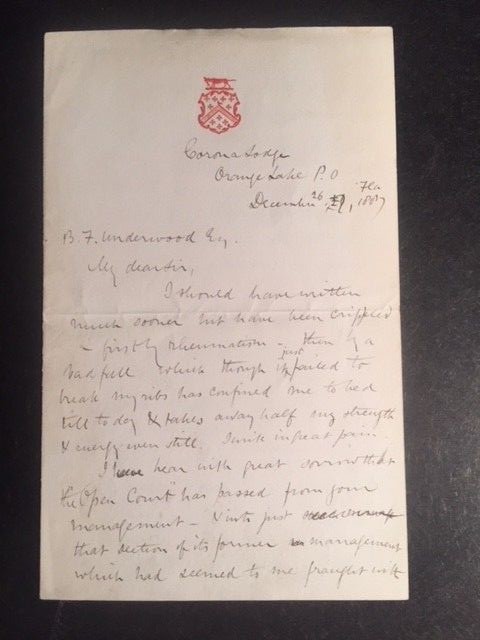 Corona Lodge
Orange Lake P.O
Fla
December 26, 1887
B. F. Underwood Esq.
My dear Sir,
I should have written
much sooner but have been crippled
- first by rheumatism - then by a
bad fall which though it just failed to
break my ribs has confined me to bed
till today & takes away half my strength
& energy even still. I write in great pain.
I hear with great sorrow that
the "Open Court" has passed from your
management - & into just
that section of its former management
which had seemed to me fraught with